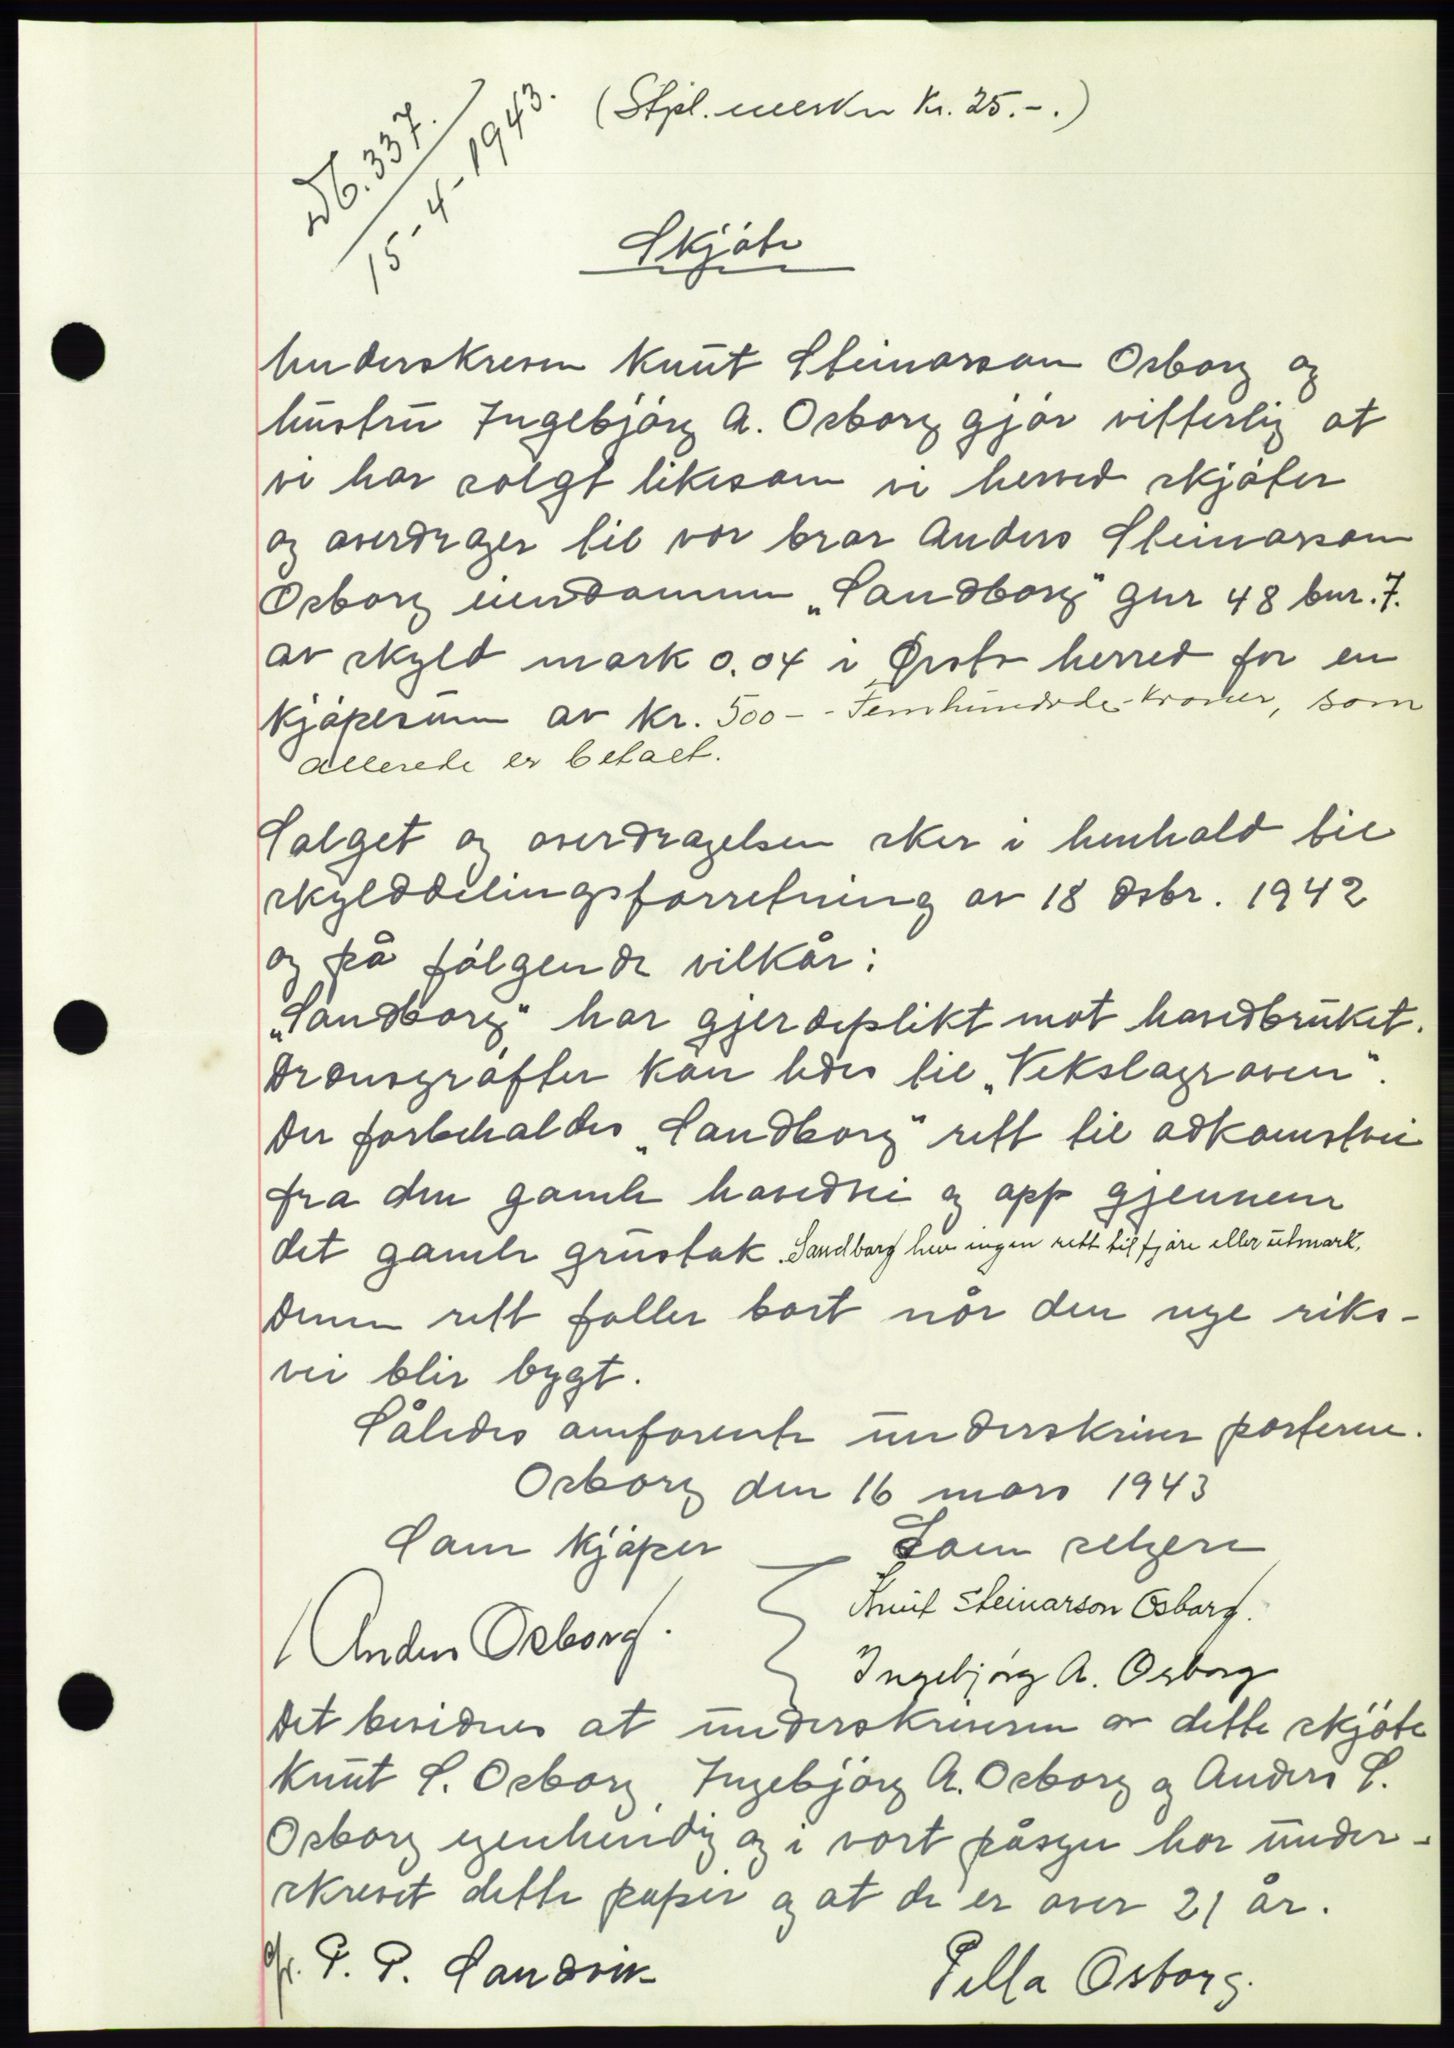 (Stpl. merke kr. 25.-.)
Nb. 337.
15-4-1943.
Skjøte
Underskreven Knut Steinarson Osborg og
hustru Ingebjørg A. Osborg gjør vitterlig at
vi har solgt likesom vi herved skjøter
og overdrager til vor bror Anders Steinarson
Osborg eiendommen „Sandborg" gnr 48 bnr. 7.
av skyld mark 0.04 i Ørsta herred for en
kjøpesum av kr. 500-- Femhundrede-kroner, som
allerede er betalt.
Salget og overdragelsen skér i henhold til
skylddelingsforretning av 18 dsbr. 1942
og på følgende vilkår:
„Sandborg" har gjerdeplikt mot hovedbruket.
Drensgrøfter kan ledes til „Vekslagraven".
Der forbeholdes „Sandborg" rett til adkomstvei
fra den gamle hovedvei og opp gjennem
det gamle grustak. Sandborg hev ingen rett til fjøre eller utmark.
Denne rett faller bort når den nye riks-
vei blir bygt.
Således omforente underskriver partene.
Osborg den 16 mars 1943
Som kjøper Som selgere
Anders Osborg. Knut Steinarson Osborg.
Ingebjørg A. Osborg
Det bevidnes at underskriverne av dette skjøte
Knut S. Osborg, Ingebjørg A. Osborg og Anders S.
Osborg egenhendig og i vort påsyn har under-
skrevet dette papir og at de er over 21 år.
P. P. Sandvik Pella Osborg.